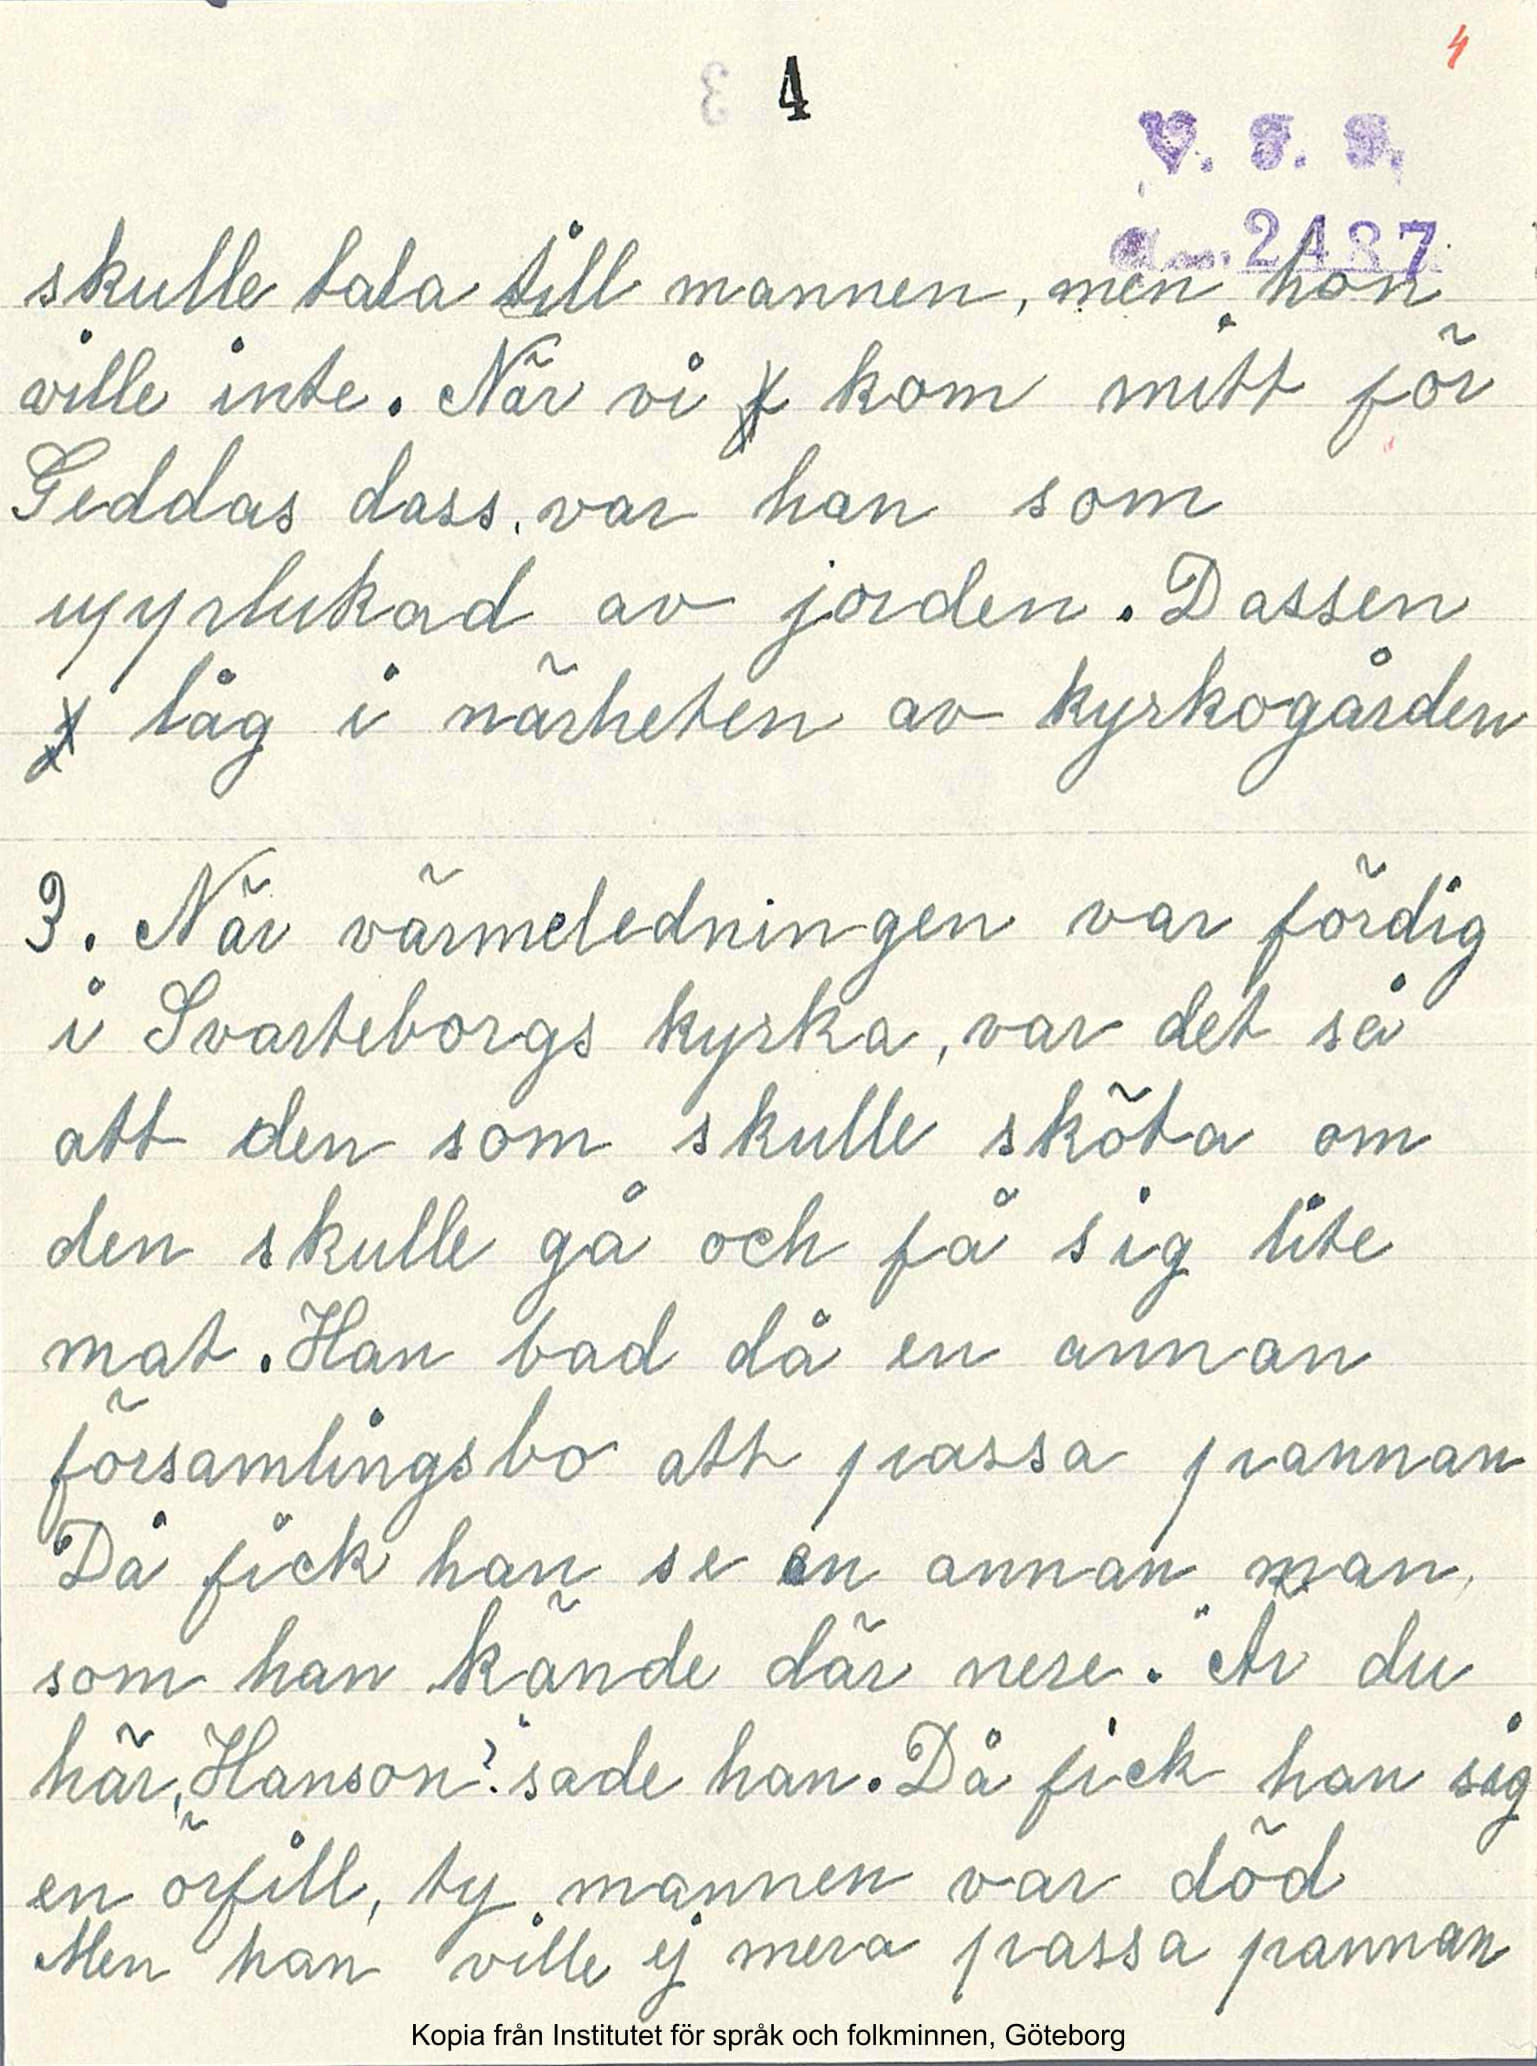 4
4
V. F. F.
Acc. 2487
skulle tala till mannen, men hon
ville inte. När vi kom mitt för
Geddas dass, var han som
uppslukad av jorden. Dassen
låg i närheten av kyrkogården
3. När värmeledningen var fördig
i Svarteborgs kyrka, var det så
att den som skulle sköta om
den skulle gå och få sig lite
mat. Han bad då en annan
församlingsbo att passa pannan
Då fick han se en annan man,
som han kände där nere. "Är du
här, Hanson?" sade han. Då fick han sig
en örfill, ty mannen var död
Men han ville ej mera passa pannan
Kopia från Institutet för språk och folkminnen, Göteborg